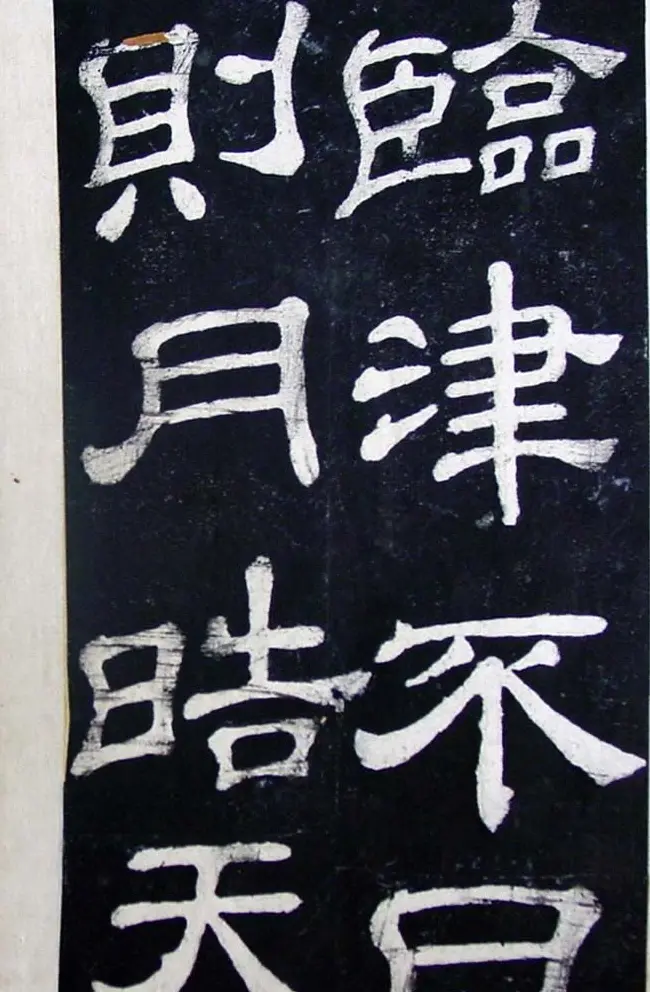 臨津不
則月晧天